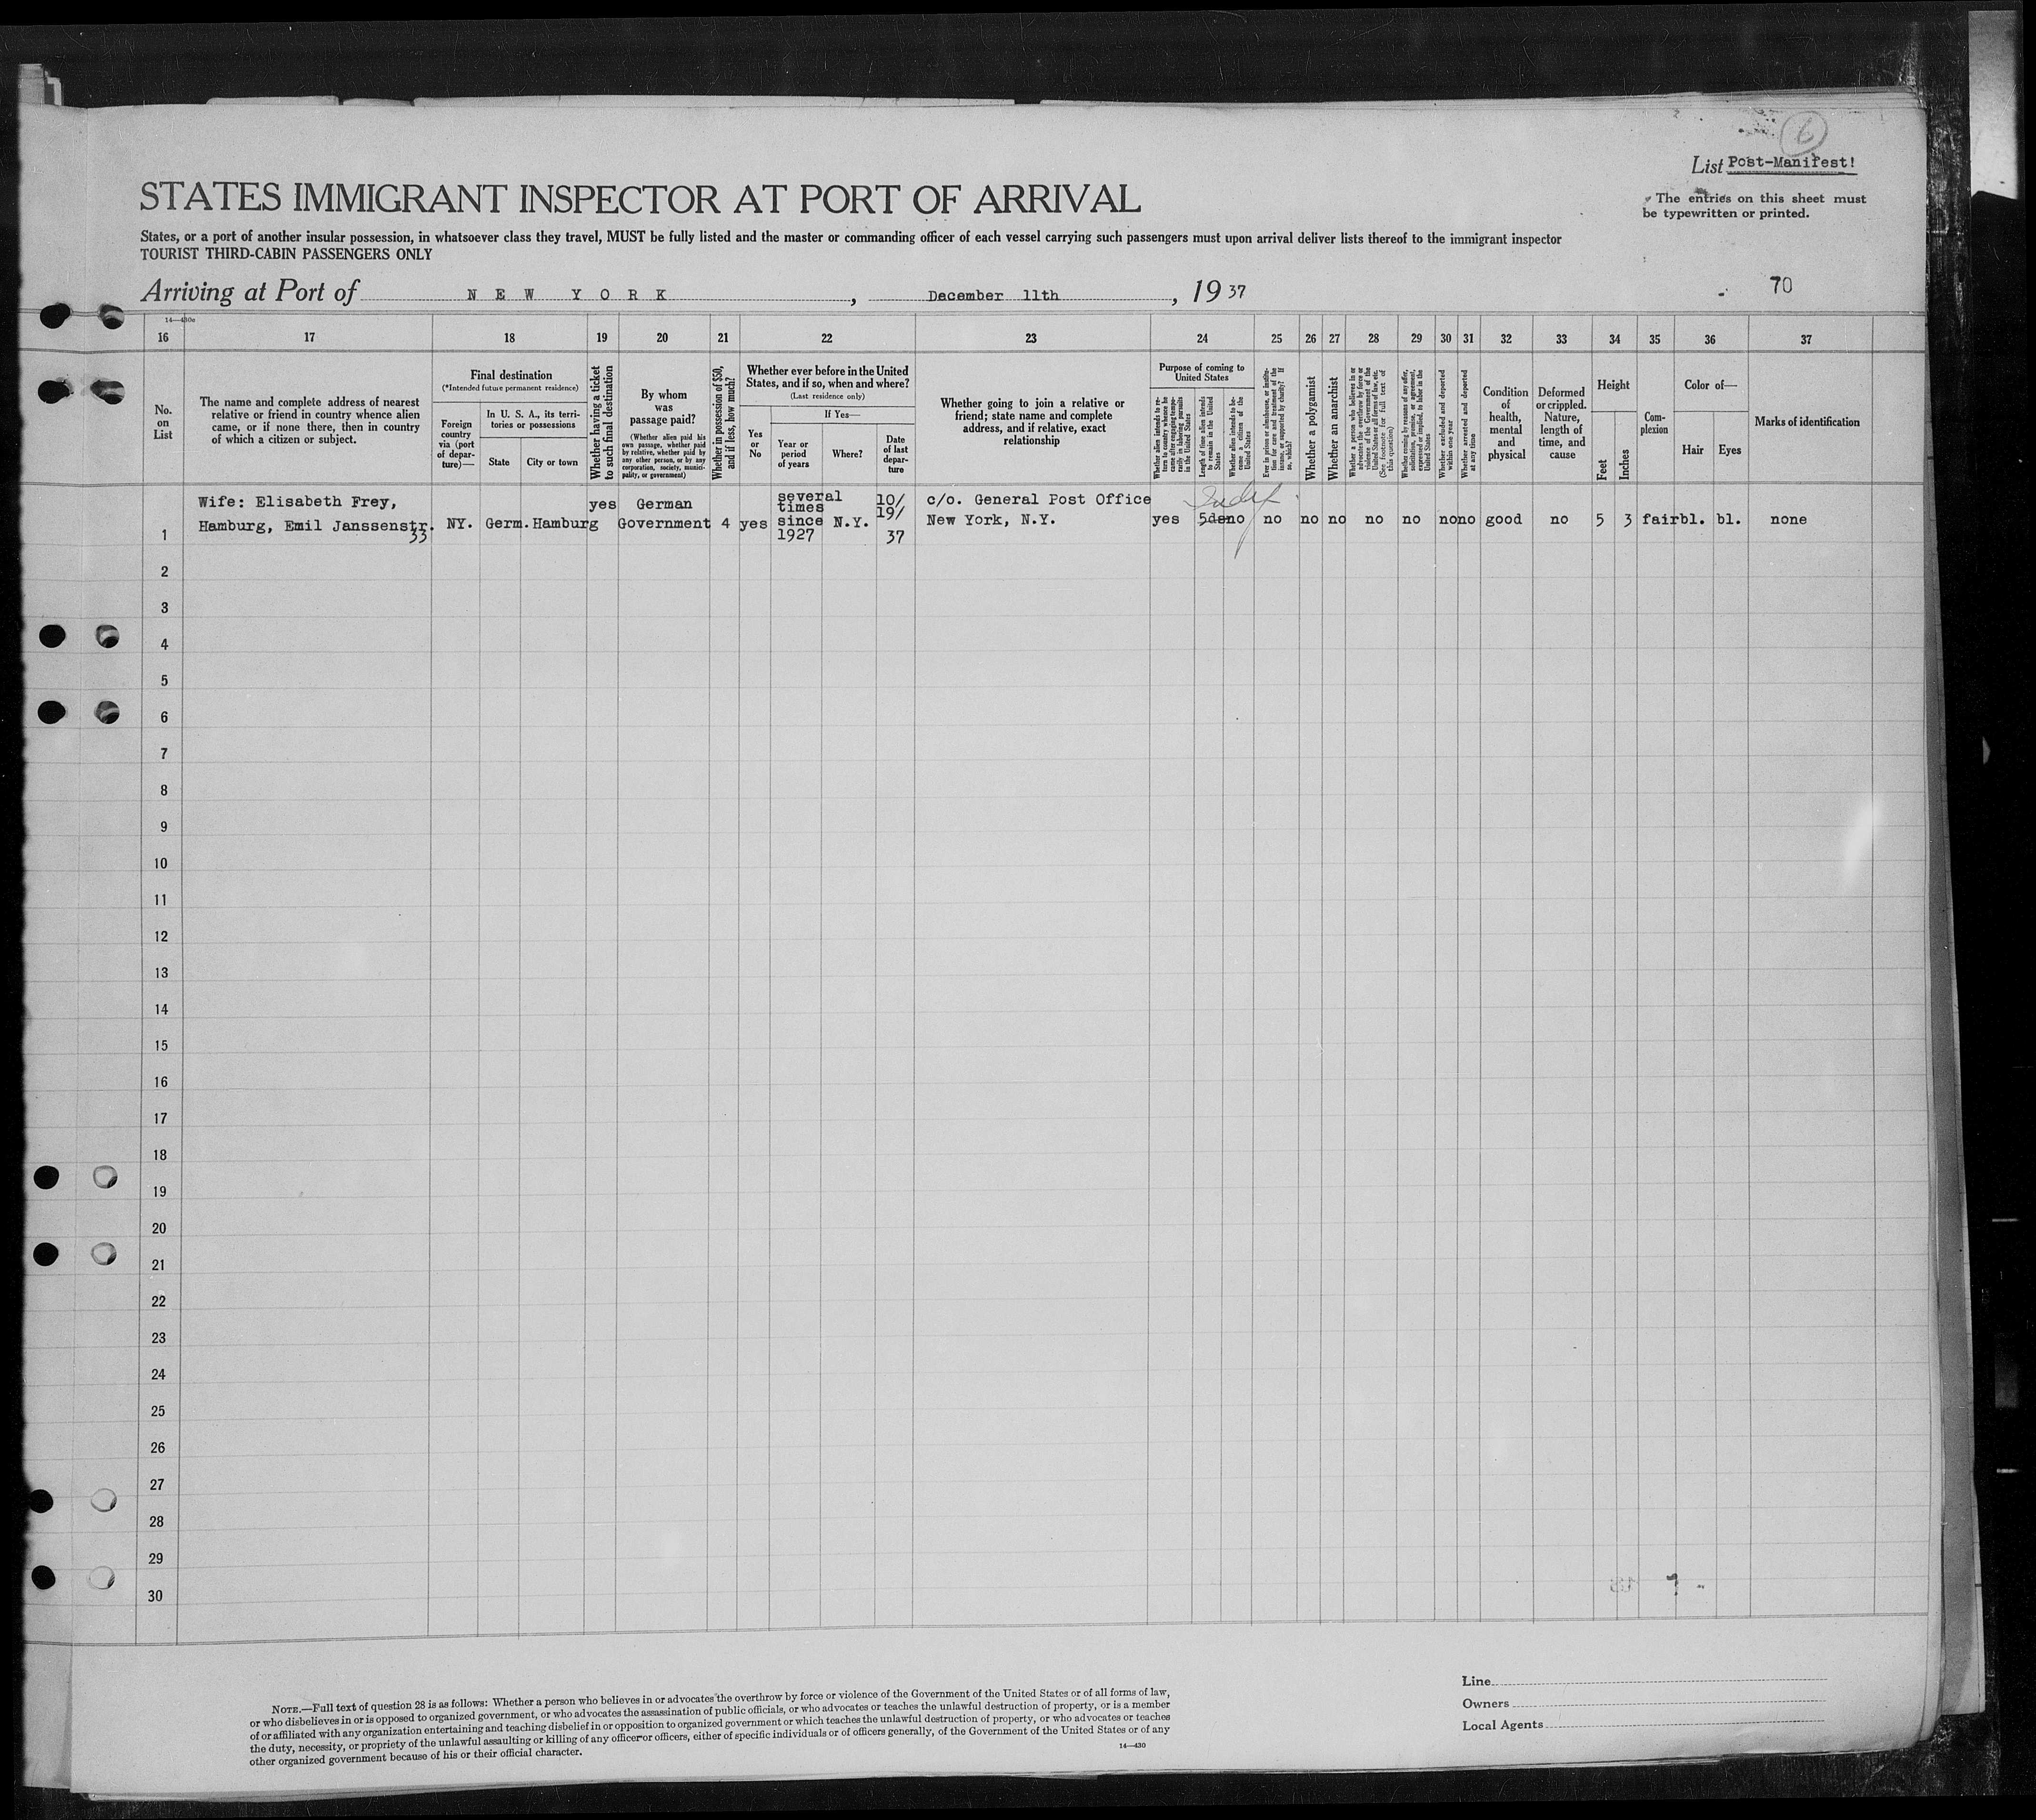 6
List Post-Manifest!
STATES IMMIGRANT INSPECTOR AT PORT OF ARRIVAL
The entries on this sheet must
be typewritten or printed.
States, or a port of another insular possession, in whatsoever class they travel, MUST be fully listed and the master or commanding officer of each vessel carrying such passengers must upon arrival deliver lists thereof to the immigrant inspector
TOURIST THIRD-CABIN PASSENGERS ONLY
Arriving at Port of NEW YORK, December 11th, 1937
70
14—430a
16 17 18 19 20 21 22 23 24 25 26 27 28 29 30 31 32 33 34 35 36 37
No.
on
List
The name and complete address of nearest
relative or friend in country whence alien
came, or if none there, then in country
of which a citizen or subject.
Final destination
(*Intended future permanent residence)
Foreign
country
via (port
of depar-
ture)—
In U. S. A., its terri-
tories or possessions
State
City or town
Whether having a ticket
to such final destination
By whom
was
passage paid?
(Whether alien paid his
own passage, whether paid
by relative, whether paid by
any other person, or by any
corporation, society, munici-
pality, or government)
Whether in possession of $50,
and if less, how much?
Whether ever before in the United
States, and if so, when and where?
(Last residence only)
Yes
or
No
If Yes—
Year or
period
of years
Where?
Date
of last
depar-
ture
Whether going to join a relative or
friend; state name and complete
address, and if relative, exact
relationship
Purpose of coming to
United States
Whether alien intends to re-
turn to country whence he
came after engaging tempo-
rarily in laboring pursuits
in the United States
Length of time alien intends
to remain in the United
States
Whether alien intends to be-
come a citizen of the
United States
Ever in prison or almshouse, or institu-
tion for care and treatment of the
insane, or supported by charity? If
so, which?
Whether a polygamist
Whether an anarchist
Whether a person who believes in or
advocates the overthrow by force or
violence of the Government of the
United States or all forms of law, etc.
(See footnote for full text of
this question)
Whether coming by reason of any offer,
solicitation, promise, or agreement,
expressed or implied, to labor in the
United States
Whether excluded and deported
within one year
Whether arrested and deported
at any time
Condition
of
health,
mental
and
physical
Deformed
or crippled.
Nature,
length of
time, and
cause
Height
Feet
Inches
Com-
plexion
Color of—
Hair
Eyes
Marks of identification
1
Wife: Elisabeth Frey,
Hamburg, Emil Janssenstr.
33
NY.
Germ.
Hamburg
yes
German
Government
4
yes
several
times
since
1927
N.Y.
10/
19/
37
c/o. General Post Office
New York, N.Y.
yes
Indef
5ds
no
no
no
no
no
no
no
no
good
no
5
3
fair
bl.
bl.
none
2
3
4
5
6
7
8
9
10
11
12
13
14
15
16
17
18
19
20
21
22
23
24
25
26
27
28
29
30
NOTE.—Full text of question 28 is as follows: Whether a person who believes in or advocates the overthrow by force or violence of the Government of the United States or of all forms of law,
or who disbelieves in or is opposed to organized government, or who advocates the assassination of public officials, or who advocates or teaches the unlawful destruction of property, or is a member
of or affiliated with any organization entertaining and teaching disbelief in or opposition to organized government or which teaches the unlawful destruction of property, or who advocates or teaches
the duty, necessity, or propriety of the unlawful assaulting or killing of any officer or officers, either of specific individuals or of officers generally, of the Government of the United States or of any
other organized government because of his or their official character.
14—430
Line
Owners
Local Agents